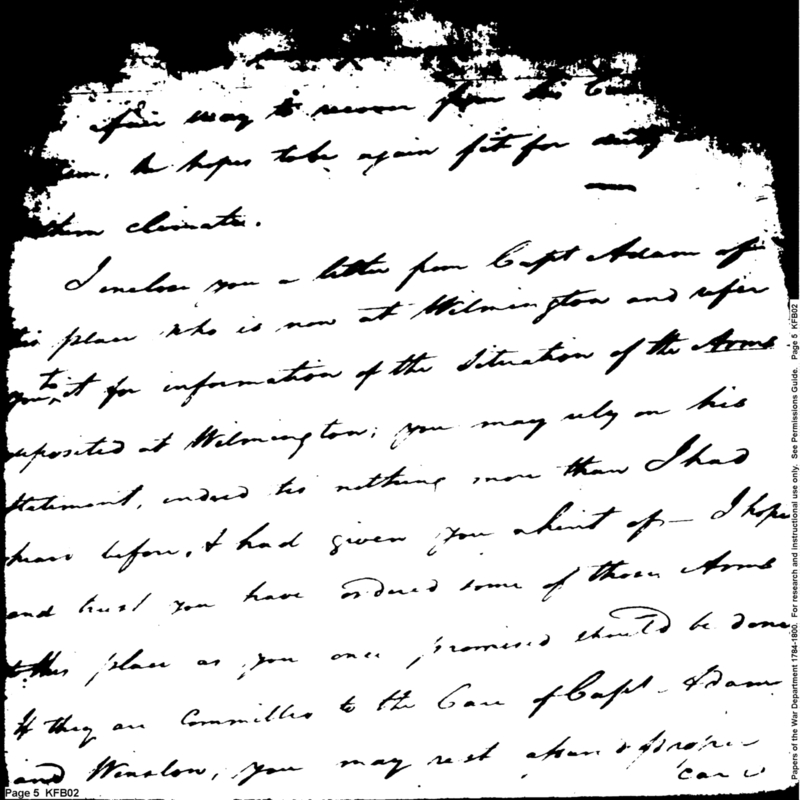 fair way to recover from his
he hopes tobe again fit for duty
climate.
I enclose you a letter from Capt Adam of
this place who is now at Wilmington and refer
you to it for information of the Situation of the Arms
deposited at Wilmington; you may rely on his
Statement, indeed tis nothing more than I had
before, & had given you ahint of — I hope
and trust you have ordered some of those Arms
to this place as you once promised should be done
If they are Committed to the Care of Capt. Adam
and Winslow, you may rest of proper
care
Page 5 KFB02
Papers of the War Department 1784-1800. For research and instructional use only. See Permissions Guide. Page 5 KFB02